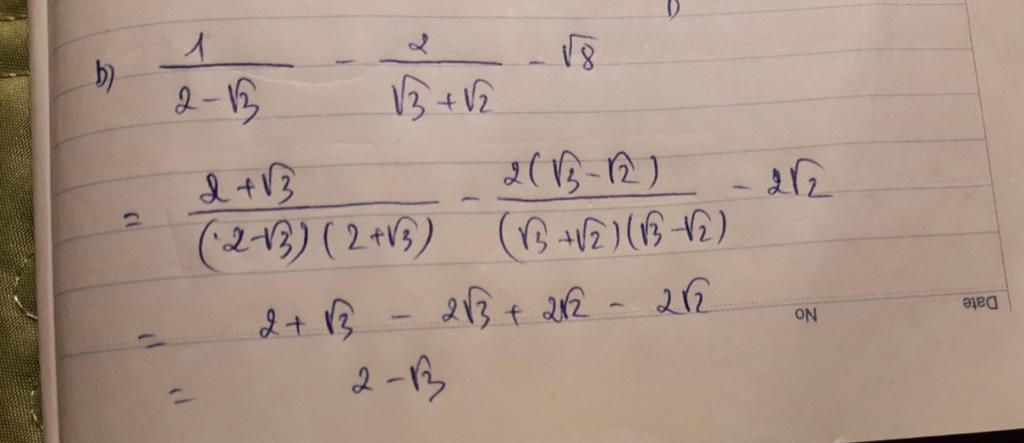 b) 1/(2-√3) - 2/(√3+√2) - √8
= (2+√3)/((2-√3)(2+√3)) - 2(√3-√2)/((√3+√2)(√3-√2)) - 2√2
= 2+√3 - 2√3+2√2 - 2√2
= 2-√3
No
Date